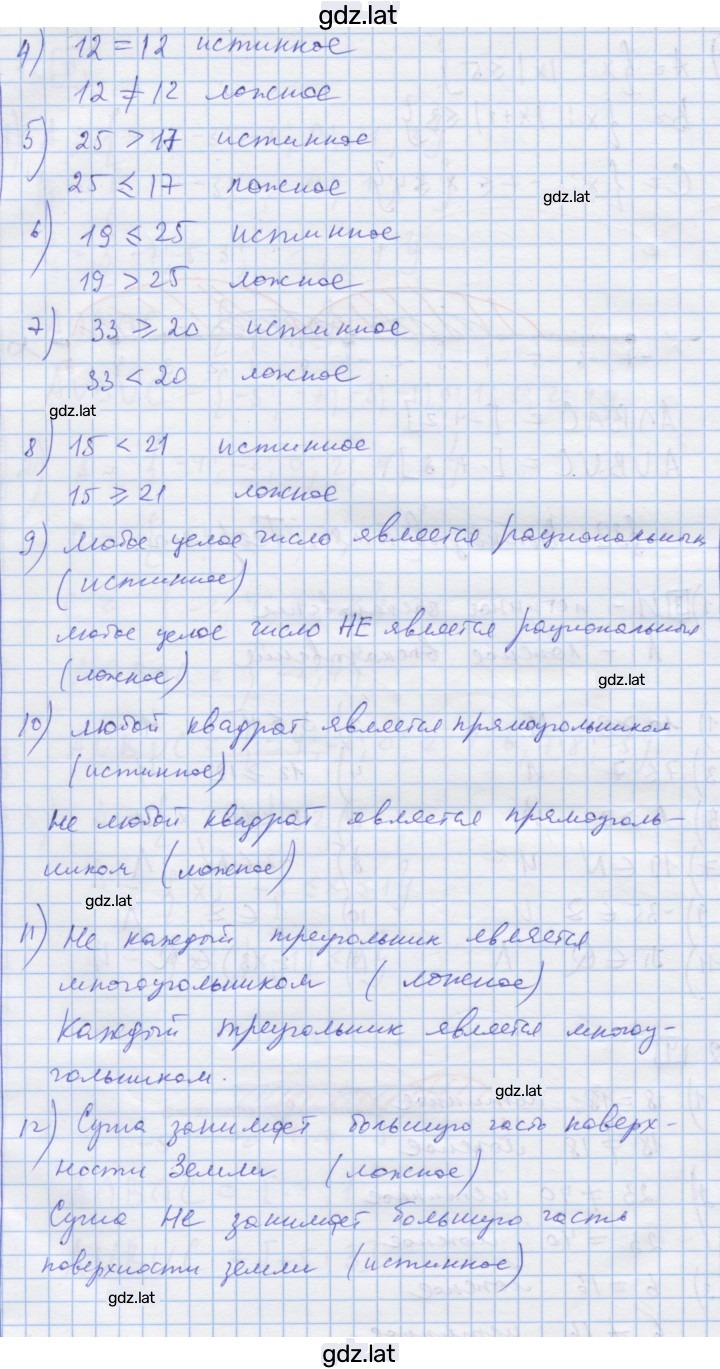 gdz.lat
4) 12 = 12 истинное
12 ≠ 12 ложное
5) 25 > 17 истинное
25 ≤ 17 ложное
gdz.lat
6) 19 ≤ 25 истинное
19 > 25 ложное
7) 33 ≥ 20 истинное
33 < 20 ложное
gdz.lat
8) 15 < 21 истинное
15 ≥ 21 ложное
9) Любое целое число является рациональным
(истинное)
любое целое число НЕ является рациональным
(ложное)
gdz.lat
10) Любой квадрат является прямоугольником
(истинное)
Не любой квадрат является прямоуголь-
ником (ложное)
gdz.lat
11) Не каждый треугольник является
многоугольником (ложное)
Каждый треугольник является многоу-
гольником.
gdz.lat
12) Суша занимает большую часть поверх-
ности Земли (ложное)
Суша НЕ занимает большую часть
поверхности земли (истинное)
gdz.lat
gdz.lat